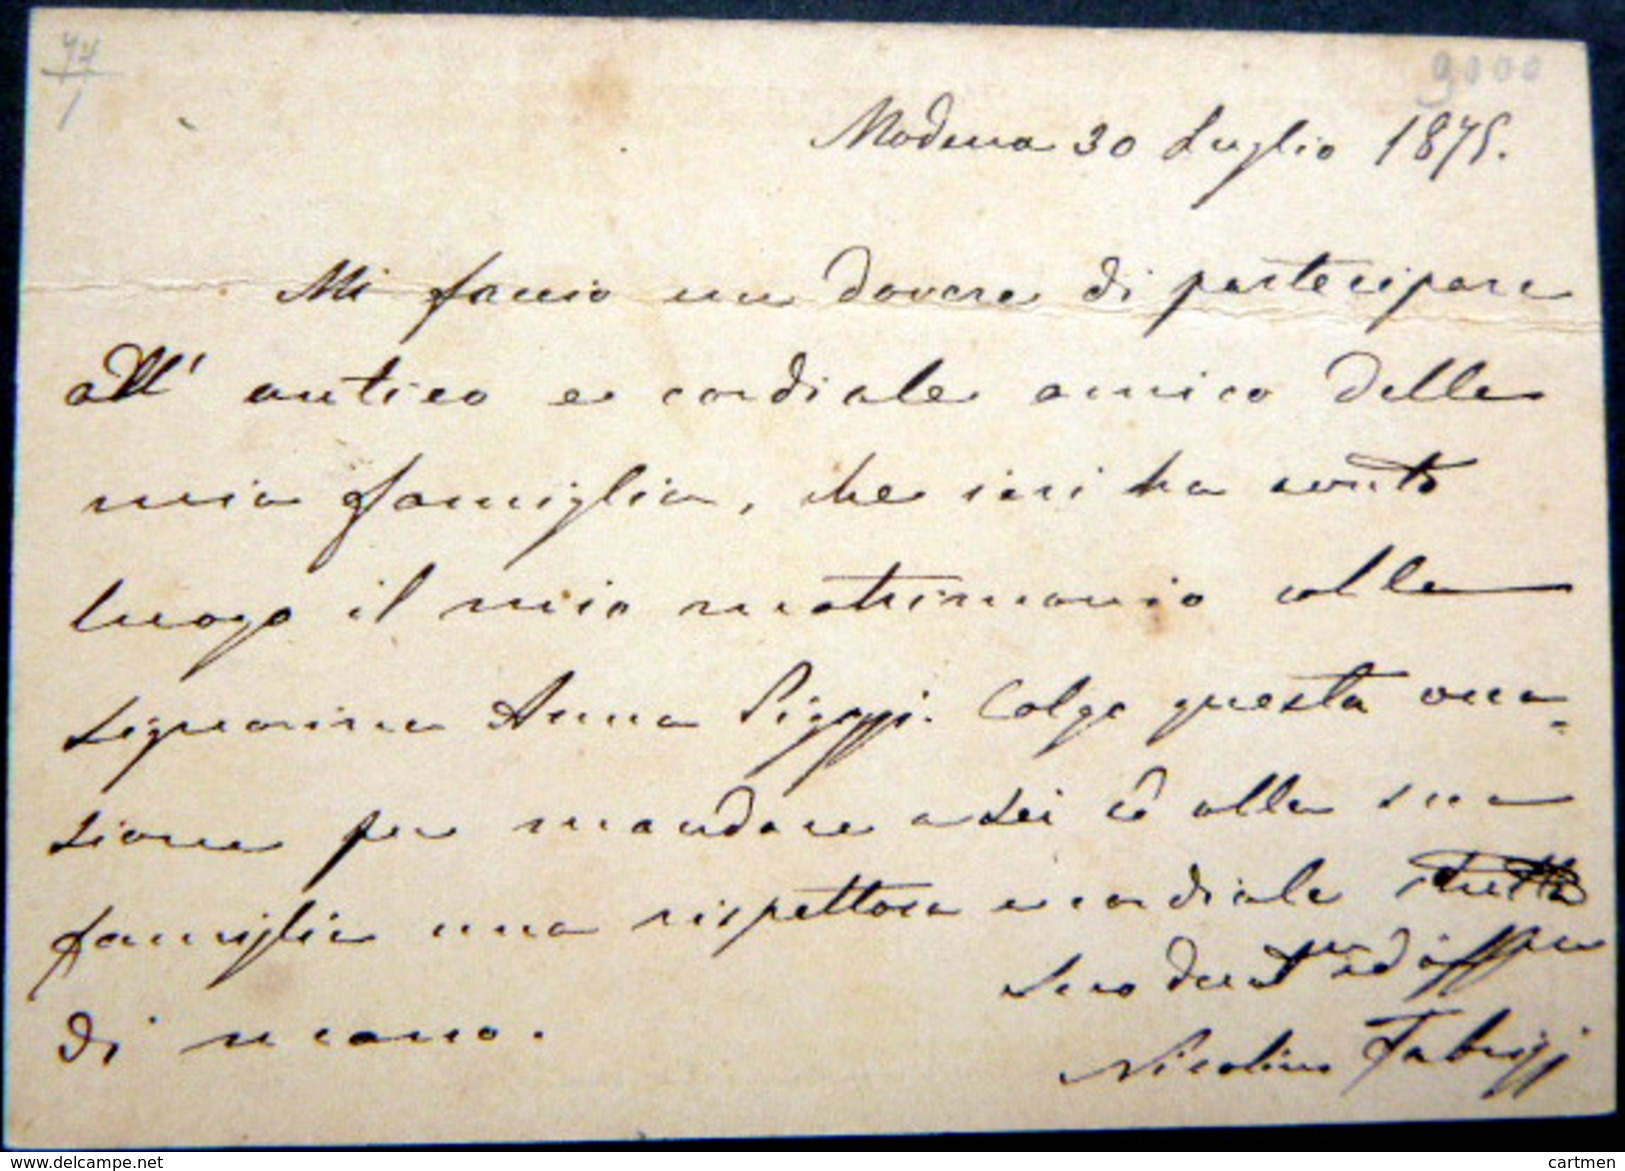 74
1
9000
Modena 30 Luglio 1875.
Mi faccio un dovere di partecipare
all' antico e cordiale amico della
mia famiglia, che ieri ha avuto
luogo il mio matrimonio colla
Signorina Anna Piggj. Colgo questa occa=
sione per mandare a Lei e alla sua
famiglia una rispettosa e cordiale stretta
di mano.
Suo devot^mo ed aff^mo
Nicolino Fabrizj
cartmen
www.delcampe.net